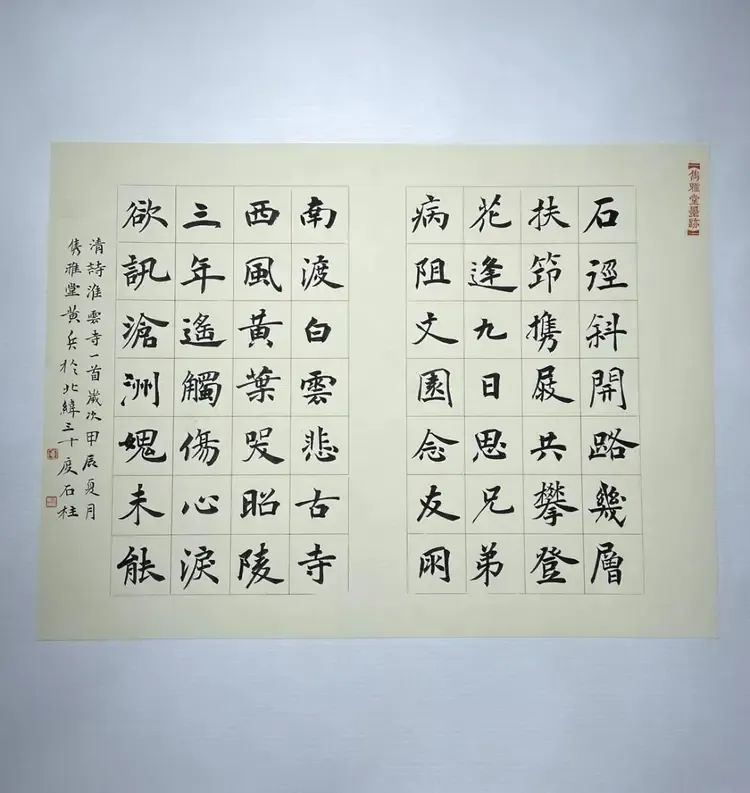 雋雅堂墨跡
石徑斜開路幾層
扶筇攜屐共攀登
花逢九日思兄弟
病阻文園念友朋
南渡白雲悲古寺
西風黃葉哭昭陵
三年遙觸傷心淚
欲訊滄洲媿未能
清詩淮雲寺一首歲次甲辰夏月
雋雅堂黃兵於北緯三十度石柱